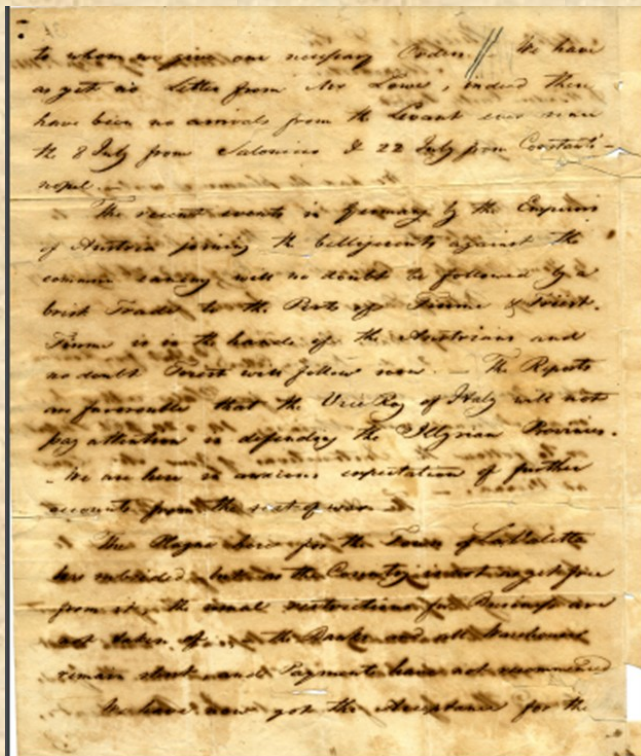 to whom we give our necessary Orders. // We have
as yet no Letter from Mr Lowe, indeed there
have been no arrivals from the Levant ever since
the 8 July from Salonica & 22 July from Constanti-
nople.
The recent events in Germany by the Emperor
of Austria joining the belligerents against the
common enemy will no doubt be followed by a
brisk Trade to the Ports of Fiume & Triest.
Fiume is in the hands of the Austrians and
no doubt Triest will follow soon. — The Reports
are favourable that the Vice Roy of Italy will not
pay attention in defending the Illyrian Provinces.
- We are here in anxious expectation of further
accounts from the seat of war.
The Plague here for the Town of LaValetta
has subsided, but as the Country is not as yet free
from it, the usual restrictions for Business are
not taken off, the Banks and all Warehouses
remain shut and Payments have not recommenced
We have now got the Acceptance for the